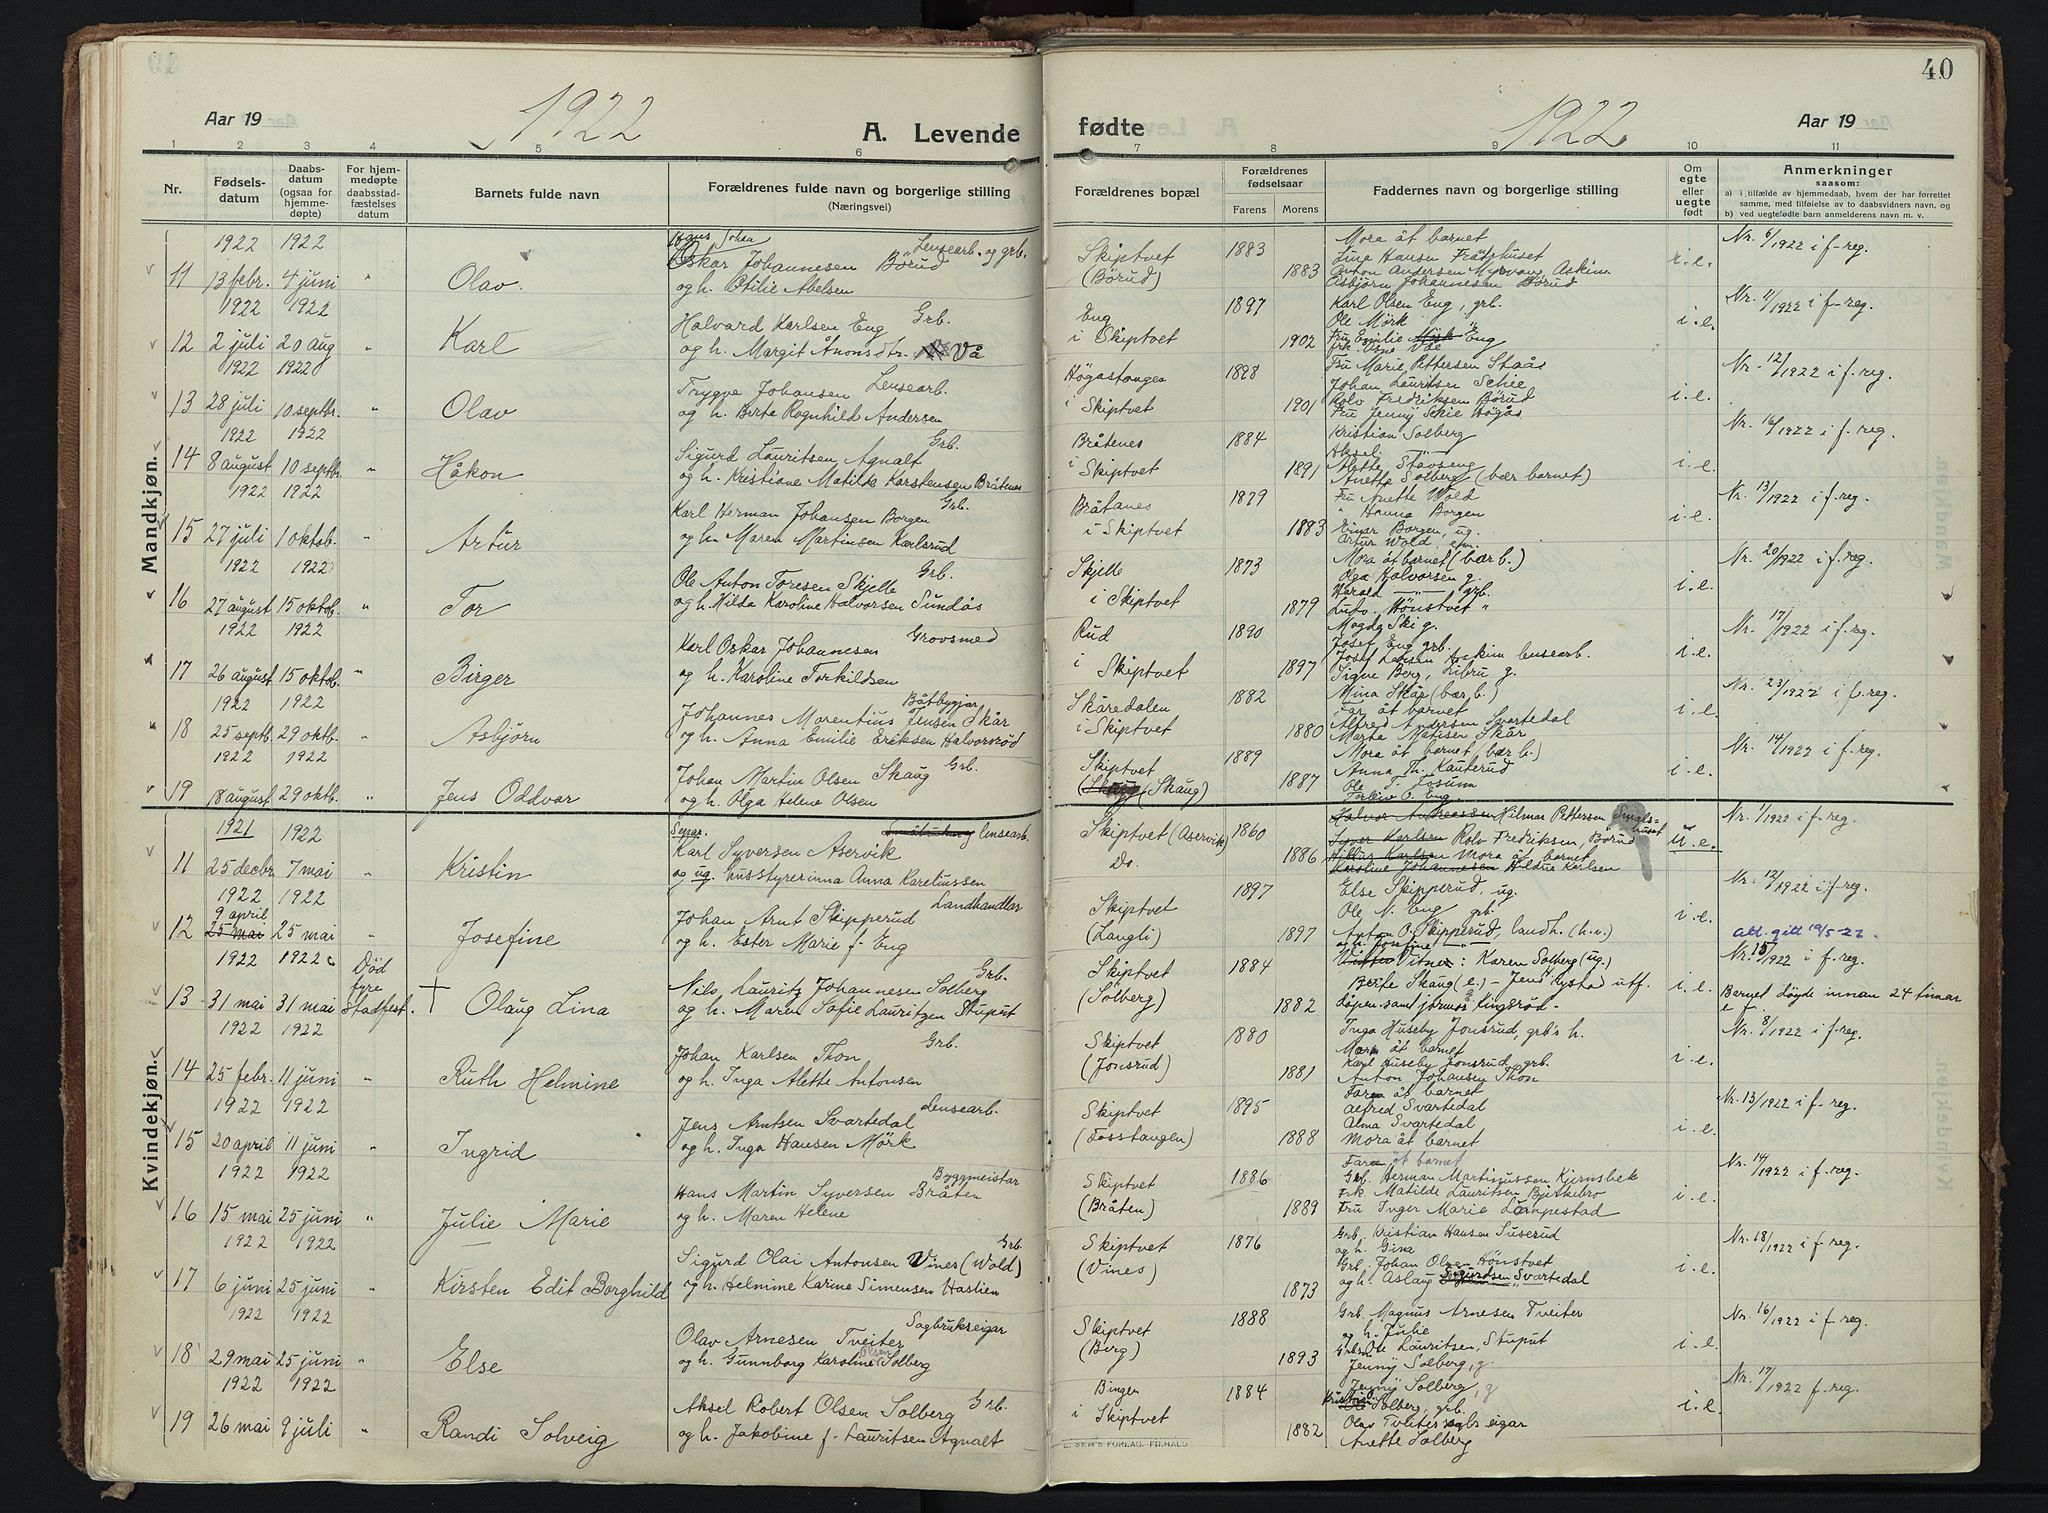 40
Aar 19 1922 A. Levende fødte 1922. Aar 19
1 2 3 4 5 6 7 8 9 10 11
Nr. Fødselsdatum Daabsdatum (ogsaa for hjemmedøpte) For hjemmedøpte daabsstadfæstelses datum Barnets fulde navn Forældrenes fulde navn og borgerlige stilling (Næringsvei) Forældrenes bopæl Forældrenes fødselsaar Farens Morens Faddernes navn og borgerlige stilling Om egte eller uegte født Anmerkninger saasom:
a) i tilfælde av hjemmedaab, hvem der har forrettet samme, med tilføielse av to daabsvidners navn, og
b) ved uegtefødte barn anmelderens navn m. v.
Mandkjøn.
1922 1922 Hans Johan Lensearb. og grb. 1883 Mora åt barnet Nr. 6/1922 i f-reg.
11 13 febr. 4 juni " Olav. Oskar Johannesen Börud Skiptvet Lina Hansen
og h. Otilie Abelsen (Börud) 1883 Anton Andersen Myrvang, Askim
Asbjörn Johannesen Börud
1922 1922 Grb. 1897 Karl Olsen Eng, grb. Nr. 11/1922 i f-reg.
12 2 juli 20 aug " Karl Halvard Karlsen Eng Eng Ole Mörk i.e.
og h. Margit Ånonsdtr. Vå i Skiptvet 1902 Fru Emilie Eng
1922 1922 Lensearb. Fru Marie Pettersen Staås Nr. 12/1922 i f. reg.
13 28 juli 10 septbr. " Olav Trygve Johansen Högåstangen Johan Lauritsen Schie i.e.
og h. Berte Ragnhild Andersen i Skiptvet 1901 Rolv Fredriksen Börud
Fru Jenny Schie Högås
1922 1922 Grb. 1884 Kristian Solberg Nr. 16/1922 i f. reg.
14 8 august 10 septbr. " Håkon Sigurd Lauritsen Agnalt Bråtenes Aksel —"— i.e.
og h. Kristiane Matilde Karstensen Bråtenes i Skiptvet 1891 Alette Stavseng
Anette Solberg (bær barnet)
1922 1922 Grb. 1879 Fru Anette Wold Nr. 13/1922 i f-reg.
15 27 juli 1 oktob. " Artur Karl Herman Johansen Borgen Bråtanes " Hanna Borgen i.e.
og h. Maren Martinsen Karlsrud i Skiptvet 1883 Einar Borgen, ug.
Artur Wold
1922 1922 Grb. 1873 Mora åt barnet (bær b.) Nr. 20/1922 i f. reg.
16 27 august 15 oktob. " Tor Ole Anton Toresen Skjelle Skjelle Olga Halvorsen g. i.e.
og h. Hilda Karoline Halvorsen Sundås i Skiptvet 1879 Harald —"— grb.
Hönstvet "
1922 1922 Grovsmed 1890 Magda Ski g. Nr. 17/1922 i f. reg.
17 26 august 15 oktob. " Birger Karl Oskar Johannesen Rud Josef Eng grb. i.e.
og h. Karoline Torkildsen i Skiptvet 1897 Josef Larsen Askim lensearb.
Signe Berg, g.
1922 1922 Båtbyggjar 1882 Mina Skår (bær b.) Nr. 23/1922 i f. reg.
18 25 septb. 29 oktb. " Asbjörn Johannes Marentius Jensen Skår Skåredalen Far åt barnet i.e.
og h. Anna Emilie Eriksen Halvorsröd i Skiptvet 1880 Alfred Andersen Svartedal
Marta Matisen Skår
1922 1922 Grb. 1889 Mora åt barnet (bær b.) Nr. 14/1922 i f. reg.
19 18 august 29 oktb. " Jens Oddvar Johan Martin Olsen Skaug Skiptvet Anna Th. Kauterud i.e.
og h. Olga Helene Olsen (Skaug) 1887 Ole T. Fosum
O. Eng
Kvindekjøn.
1921 1922 Separ. lensearb. Halvor Andreassen Hilmar Pettersen Nr. 1/1922 i f. reg.
11 25 decbr. 7 mai " Kristin Karl Syversen Aservik Skiptvet (Aservik) 1860 Syver Karlsen Rolv Fredriksen, Börud u.e.
og ug. husstyrerinna Anna Kareliussen Do. 1886 Hilda Karlsen Mora åt barnet
Karoline Johannesen Hildur Karlsen
1922 1922 Landhandlar 1897 Else Skipperud, ug. Nr. 12/1922 i f-reg.
9 april
12 25 mai 25 mai " Josefine Johan Arnt Skipperud Skiptvet Ole N. Eng grb. i.e.
og h. Ester Marie f. Eng (Langli) 1897 Anton O. Skipperud, landh. (h.v.) Att. gitt 19/5-22.
og h. Josefine —"—
1922 1922 Död fyre Grb. 1884 Vitner: Karen Solberg (ug.) Nr. 15/1922 i f. reg.
13 31 mai 31 mai Stadfest. † Olaug Lina Nils Lauritz Johannesen Solberg Skiptvet Berte Skaug (e.) – Jens Rystad utf. i.e.
og h. Maren Sofie Lauritzen Stuput (Solberg) 1882 dåpen samt jormor Ringsröd. Barnet döyde innan 24 timar
1922 1922 Grb. 1880 Inga Huseby Jonsrud, grb's h. Nr. 8/1922 i f. reg.
14 25 febr. 11 juni " Ruth Helmine Johan Karlsen Thon Skiptvet Mora åt barnet i.e.
og h. Inga Alette Antonsen (Jonsrud) 1881 Karl Huseby Jonsrud, grb.
Anton Johansen Thon
1922 1922 Lensearb. 1895 Faren åt barnet Nr. 13/1922 i f-reg.
15 20 april 11 juni " Ingrid Jens Arntsen Svartedal Skiptvet Alfred Svartedal i.e.
og h. Inga Hansen Mörk (Fosstangen) 1888 Alma Svartedal
Mora åt barnet
1922 1922 Byggmeistar 1886 Faren åt barnet Nr. 14/1922 i f. reg.
16 15 mai 25 juni " Julie Marie Hans Martin Syversen Bråten Skiptvet Grb. Herman Martinussen Kjernsbek i.e.
og h. Maren Helene (Bråten) 1889 Frk Matilde Lauritsen Bjerkebro
Fru Inger Marie Lampestad
1922 1922 Grb. 1876 Grb. Kristian Hansen Suserud Nr. 18/1922 i f. reg.
17 6 juni 25 juni " Kirsten Edit Borghild Sigurd Olai Antonsen Vines (Wold) Skiptvet og h. Gina i.e.
og h. Helmine Karine Simensen Haslien (Vines) 1873 Grb. Johan Olsen Hönstvet
og h. Aslaug Sigurdsen Svartedal
1922 1922 Sagbrukseigar 1888 Grb. Magnus Arnesen Tveiter Nr. 16/1922 i f. reg.
18 29 mai 25 juni " Else Olav Arnesen Tveiter Skiptvet og h. Julie i.e.
og h. Gunnborg Karoline Olsen Solberg (Berg) 1893 Ole Lauritsen, Stuput
Jenny Solberg, g.
1922 1922 Grb. 1884 Jenny Solberg, g Nr. 17/1922 f. reg.
19 26 mai 9 juli " Randi Solveig Aksel Robert Olsen Solberg Bingen Kristian Solberg, grb. i.e.
og h. Jakobine f. Lauritsen Agnalt i Skiptvet 1882 Olav Tveiter sagbr. eigar
Anette Solberg
E. SEM'S FORLAG. FR.HALD